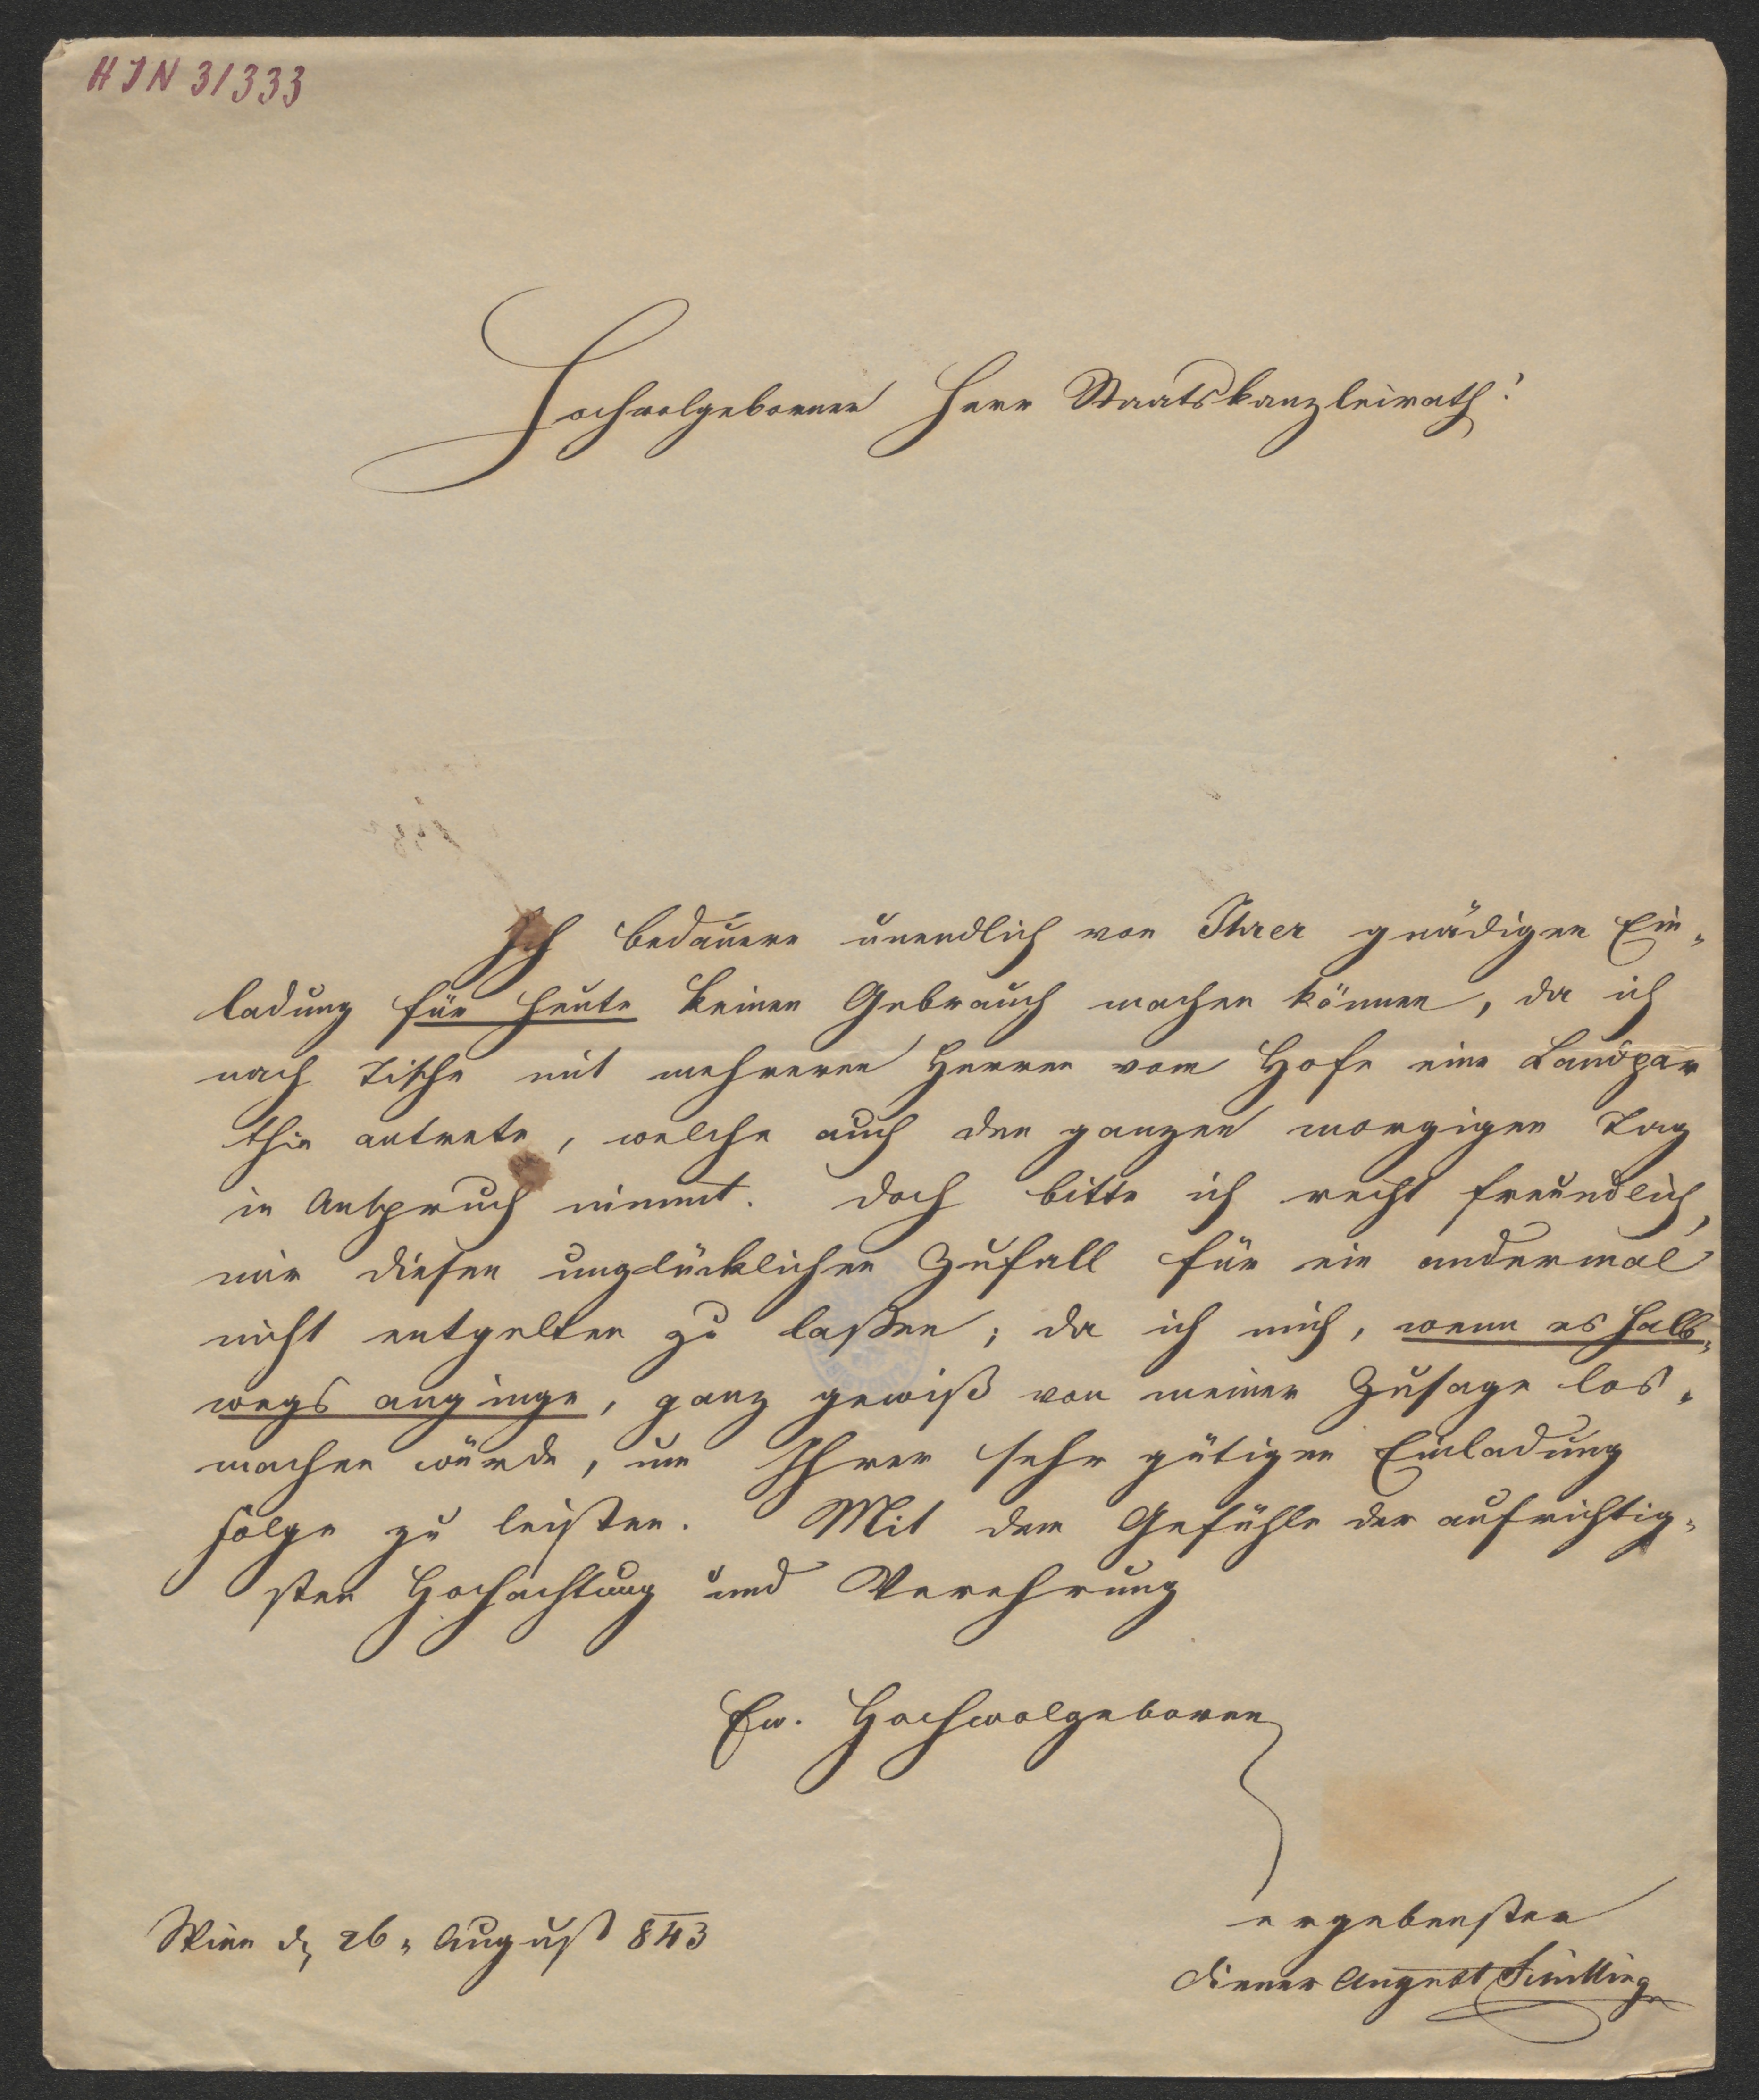 HIN 31333
Hochwolgeborner Herr Staatskanzleirath!
Ich bedaure unendlich von Ihrer gnädigen Ein-
ladung für heute keinen Gebrauch machen können, da ich
nach Tische mit mehreren Herren vom Hofe eine Landpar
thie antrete, welche auch den ganzen morgigen Tag
in Anspruch nimmt. Doch bitte ich recht freundlich,
mir diesen unglücklichen Zufall für ein andermal
nicht entgelten zu laßen; da ich mich, wenn es halb-
wegs anginge, ganz gewiß von meiner Zusage los-
machen würde, um Ihrer sehr gütigen Einladung
Folge zu leisten. Mit dem Gefühle der aufrichtig-
sten Hochachtung und Verehrung
Ew. Hochwolgeboren
ergebenster
Wien d. 26. August 843
Diener August